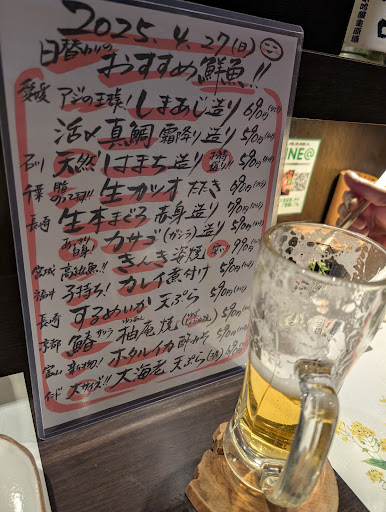 2025.4.27(日)
日替わりの
おすすめ鮮魚!!
愛媛 アジの王様! しまあじ造り 690円
活〆真鯛 霜降り造り 590円
石川 天然はまち造り 590円
千葉 生カツオ タタき 690円
長崎 生本まぐろ 赤身造り 790円
カサゴ(ガシラ)造り 590円
宮城 高級魚!! きんき 姿焼
福井 子持ち! カレイ煮付け 590円
長崎 するめいか 天ぷら 590円
京都 鰆 柚庵焼 590円
富山 ホタルイカ 酢みそ 590円
インド 大サイズ!! 大海老 天ぷら
NE@